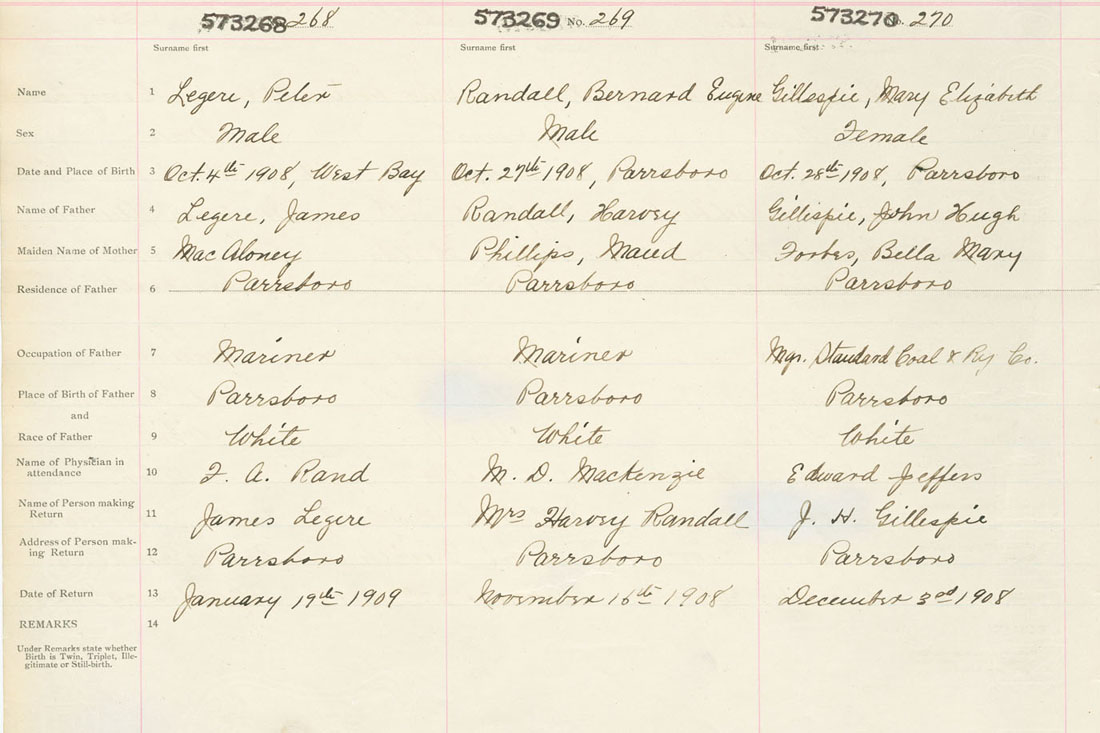 573268 268 573269 No. 269 573270 o. 270
Surname first Surname first Surname first
Name 1 Legere, Peter Randall, Bernard Eugene Gillespie, Mary Elizabeth
Sex 2 Male Male Female
Date and Place of Birth 3 Oct. 4th 1908, West Bay Oct. 27th 1908, Parrsboro Oct. 28th 1908, Parrsboro
Name of Father 4 Legere, James Randall, Harvey Gillispie, John Hugh
Maiden Name of Mother 5 Mac Aloney Phillips, Maud Forbes, Bella Mary
Residence of Father 6 Parrsboro Parrsboro Parrsboro
Occupation of Father 7 Mariner Mariner Mgr. Standard Coal & Ry Co.
Place of Birth of Father 8 Parrsboro Parrsboro Parrsboro
and
Race of Father 9 White White White
Name of Physician in
attendance 10 F. A. Rand M. D. Mackenzie Edward Jeffers
Name of Person making
Return 11 James Legere Mrs Harvey Randall J. H. Gillespie
Address of Person mak-
ing Return 12 Parrsboro Parrsboro Parrsboro
Date of Return 13 January 19th 1909 November 16th 1908 December 3rd 1908
REMARKS 14
Under Remarks state whether
Birth is Twin, Triplet, Ille-
gitimate or Still-birth.